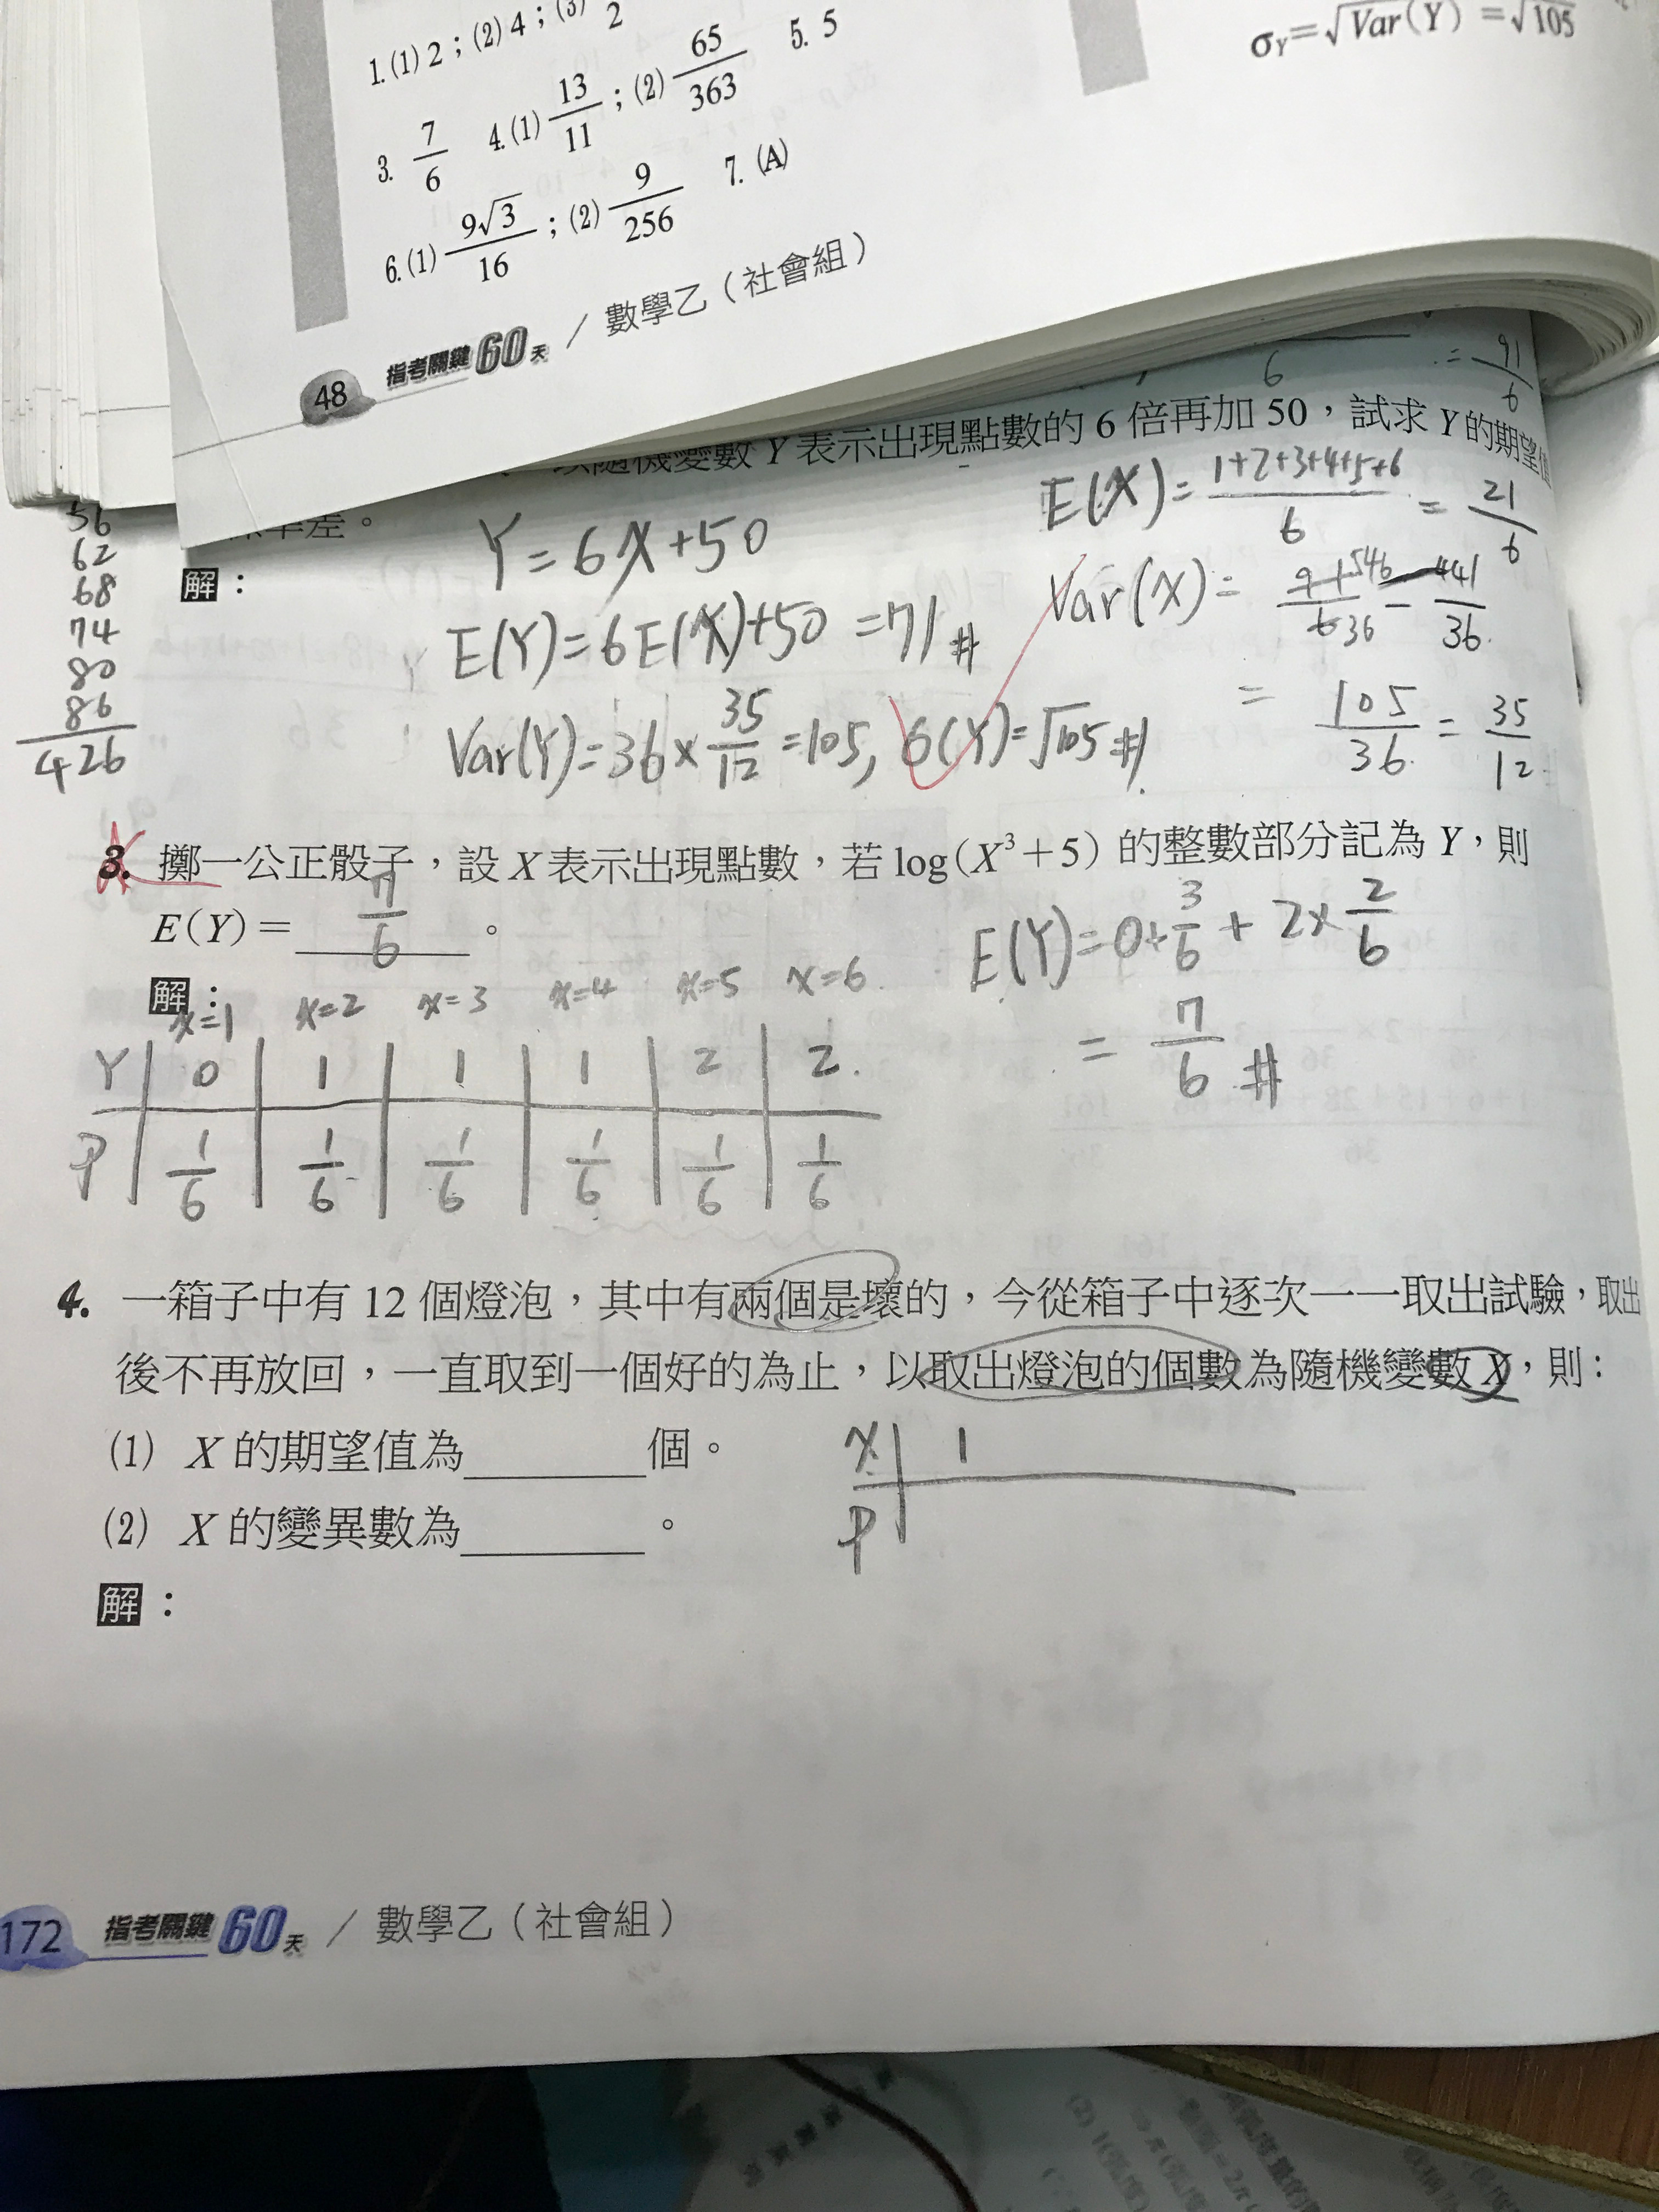 1.(1) 2；(2) 4；(3) 2
3. 7/6 4.(1) 13/11；(2) 65/363 5. 5
6.(1) 9√3/16；(2) 9/256 7. (A)
48 指考關鍵60天 / 數學乙（社會組）
σY=√Var(Y) =√105
6
= 91/6
隨機變數 Y 表示出現點數的 6 倍再加 50，試求 Y 的期望
準差。
解：
56
62
68
74
80
86
426
Y=6X+50
E(Y)=6E(X)+50 =71#
Var(Y)=36×35/12=105, σ(Y)=√105#
E(X)=1+2+3+4+5+6/6 = 21/6
Var(X)= 91/6 546/36 - 441/36
= 105/36 = 35/12
3. 擲一公正骰子，設 X 表示出現點數，若 log(X³+5) 的整數部分記為 Y，則
E(Y)= 7/6 。
解：
x=1 x=2 x=3 x=4 x=5 x=6
Y 0 1 1 1 2 2
P 1/6 1/6 1/6 1/6 1/6 1/6
E(Y)=0+3/6+2×2/6
= 7/6 #
4. 一箱子中有 12 個燈泡，其中有兩個是壞的，今從箱子中逐次一一取出試驗，取出
後不再放回，一直取到一個好的為止，以取出燈泡的個數為隨機變數 X，則：
(1) X 的期望值為 個。
(2) X 的變異數為 。
X 1
P
解：
172 指考關鍵60天 / 數學乙（社會組）